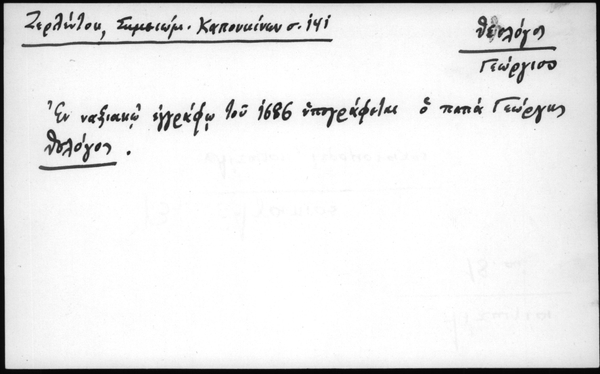 Ζερλέντου, Σημειώμ. Καπουκίνων σ. 141
Θεολόγος
Γεώργιος
Ἐν ναξιακῷ ἐγγράφῳ τοῦ 1686 ὑπογράφεται ὁ παπά Γεώργις
Θολόγος.